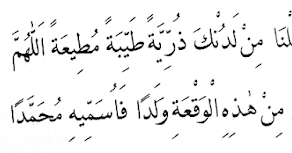 لْنَا مِنْ لَدُنْكَ ذُرِّيَّةً طَيِّبَةً مُطِيعَةً اَللّٰهُمَّ
مِنْ هٰذِهِ الْوَقْعَةِ وَلَدًا فَاُسَمِّيهِ مُحَمَّدًا